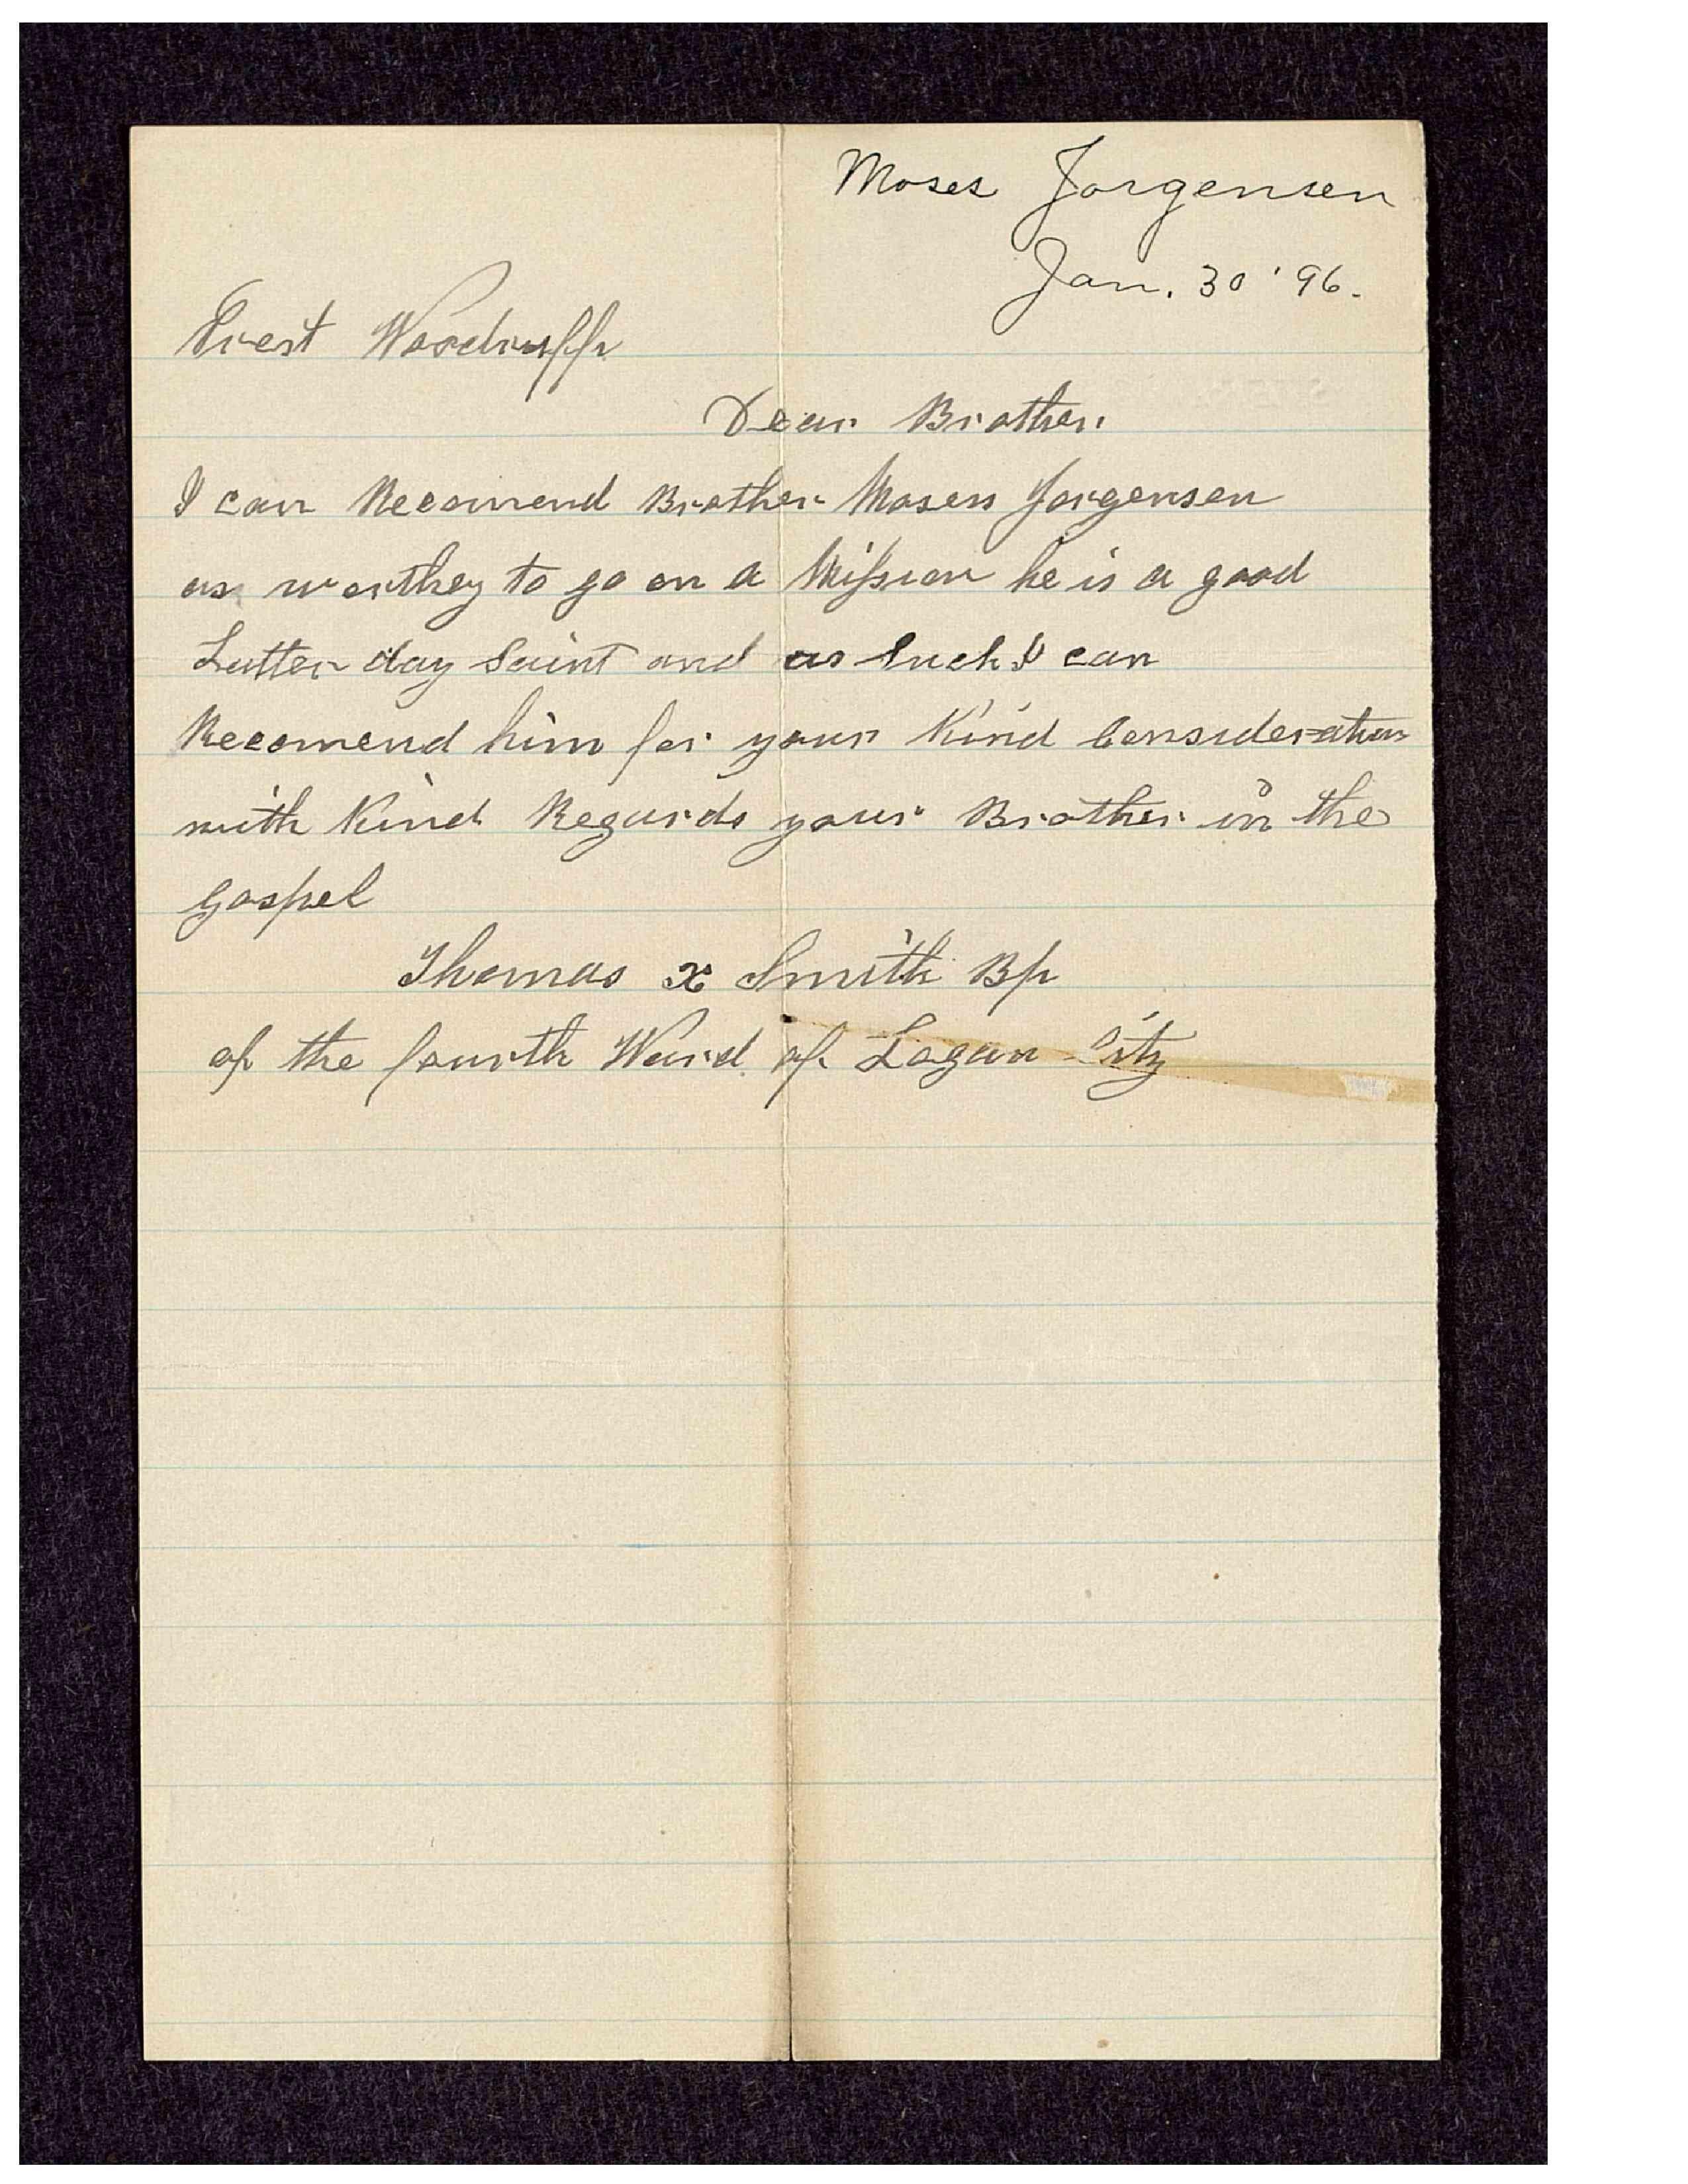 Moses Jorgensen
Jan. 30 '96.
Prest Woodruff
Dear Brother
I can Recomend Brother Moses Jorgensen
as worthey to go on a Mission he is a good
Latter day Saint and as Such I can
Recomend him for your Kind Consideration
with Kind Regards your Brother in the
gospel
Thomas x Smith Bp
of the fourth Ward of Logan City